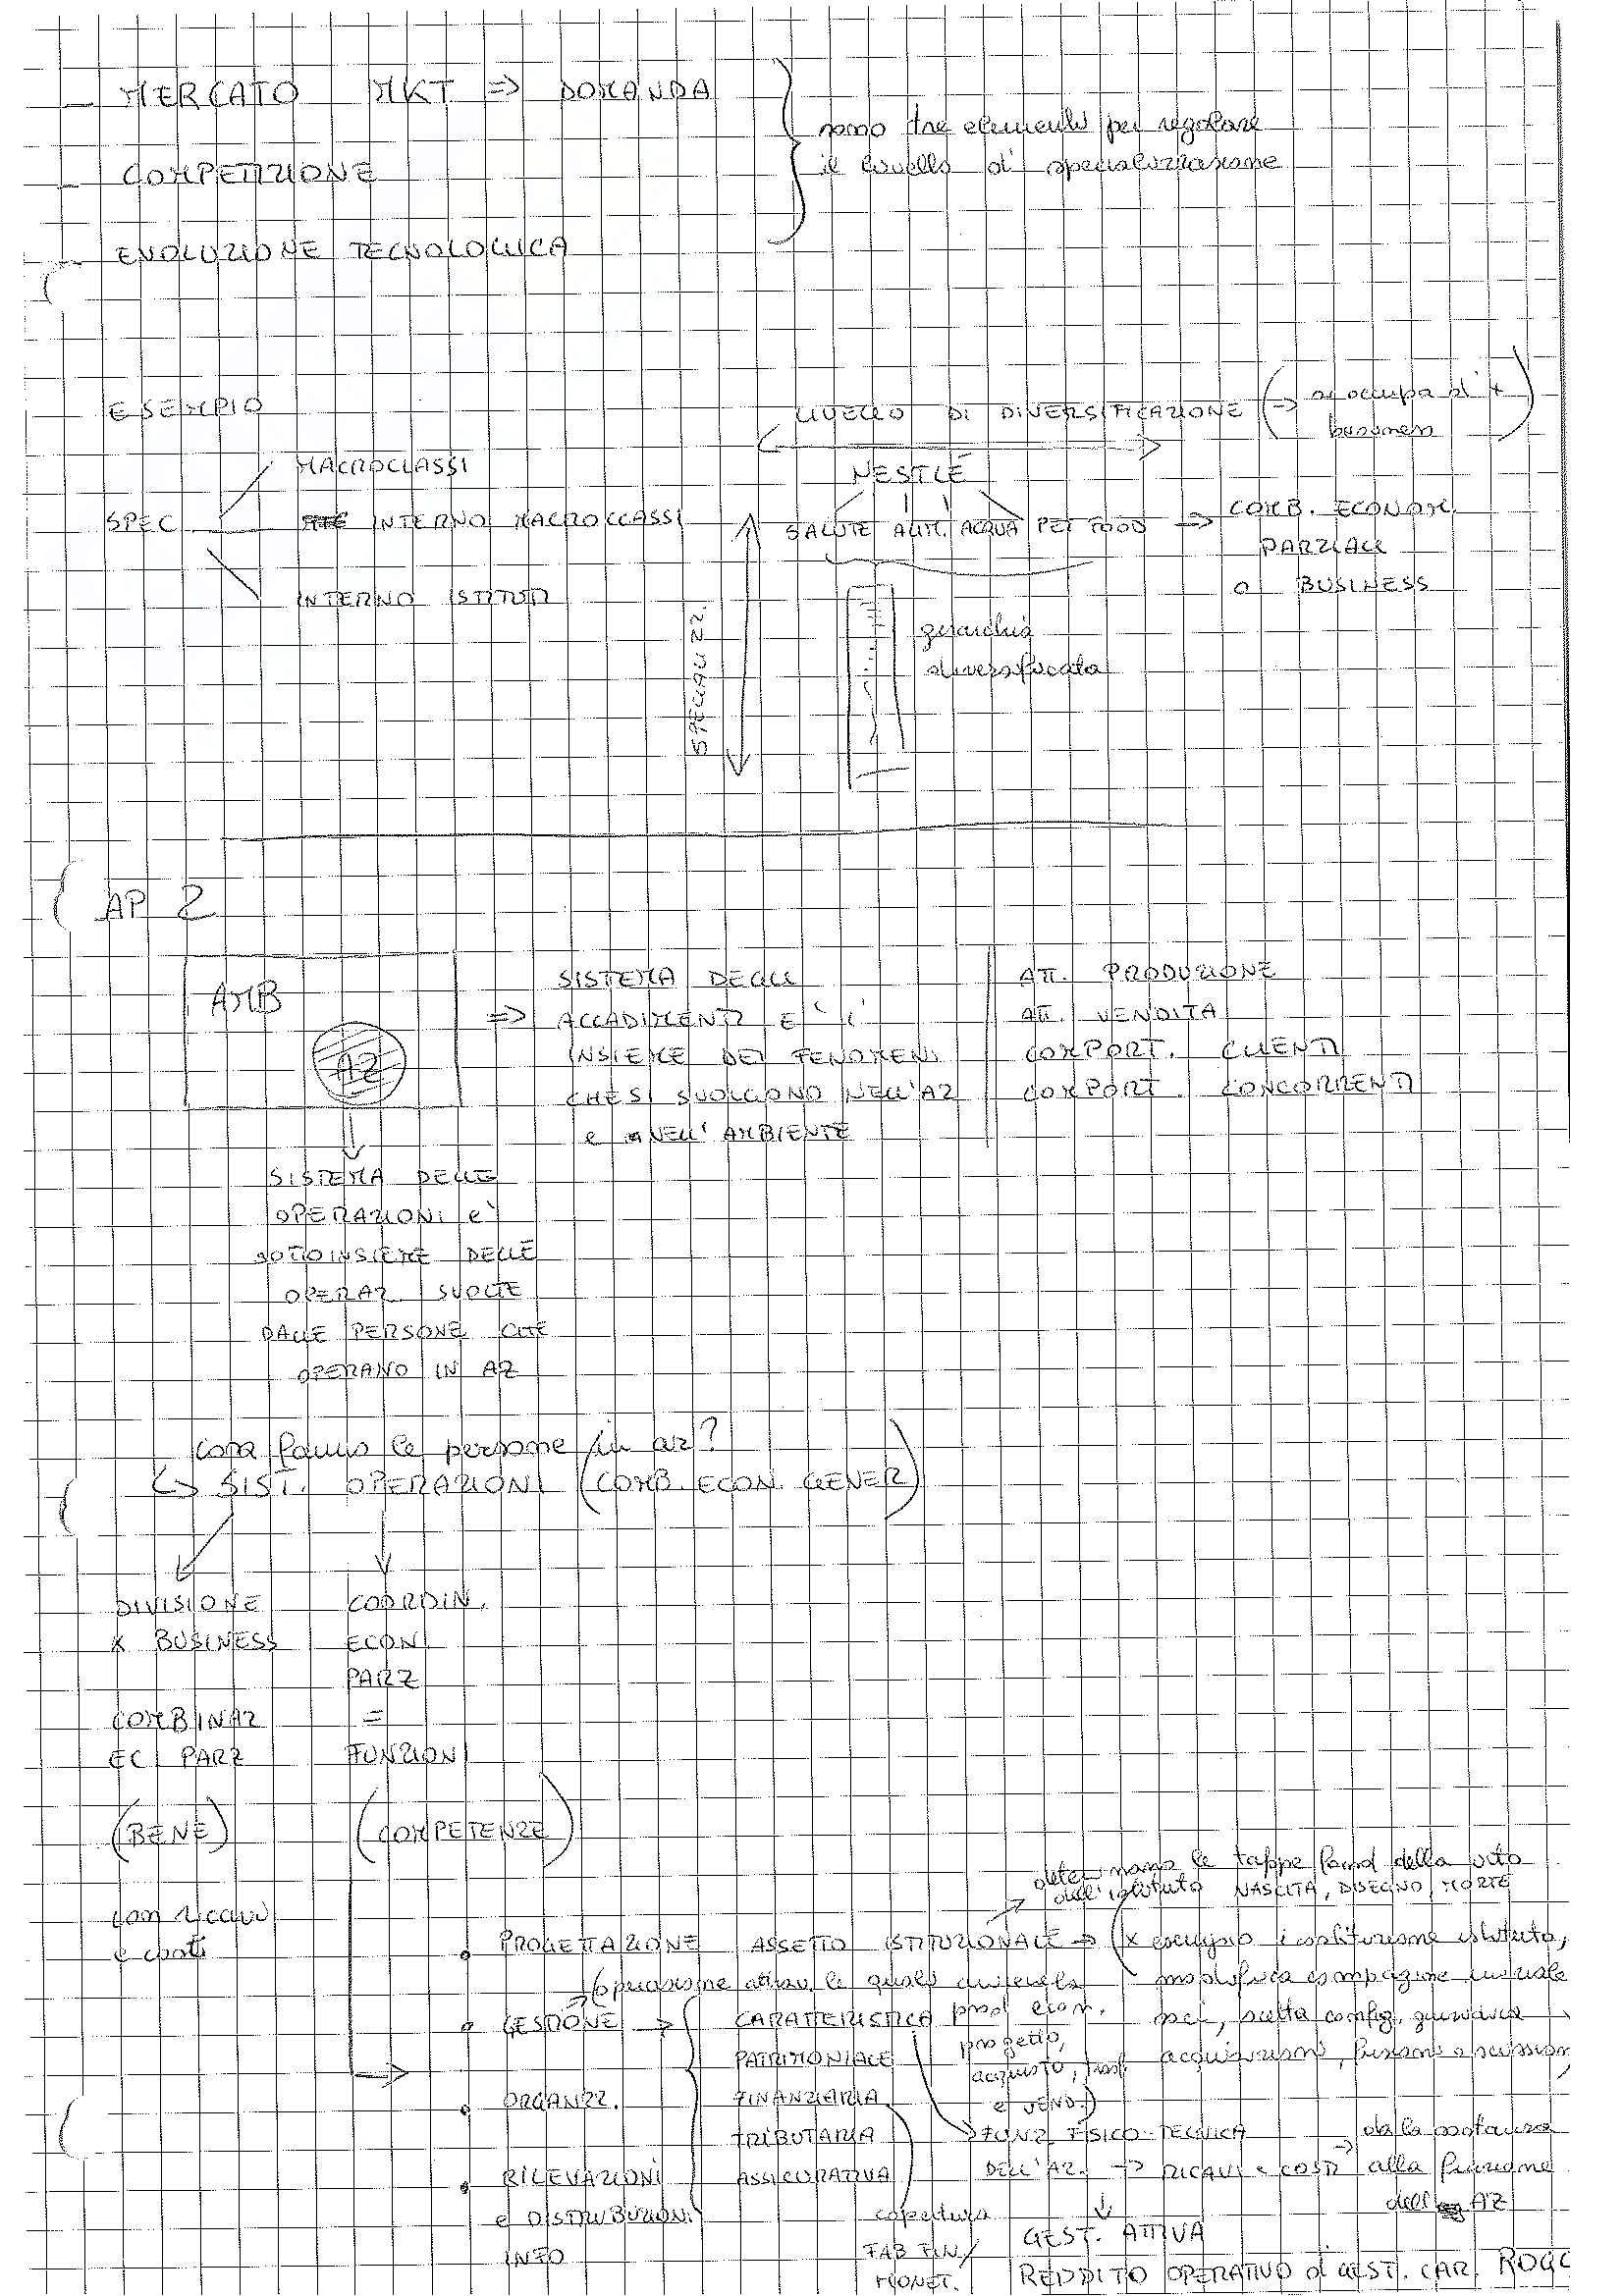 MERCATO MKT => DOMANDA
COMPETIZIONE
EVOLUZIONE TECNOLOGICA
sono tre elementi per regolare
il livello di specializzazione
ESEMPIO
SPEC
MACROCLASSI
INTERNO MACROCLASSI
INTERNO ISTITUTI
LIVELLO DI DIVERSIFICAZIONE (=> si occupa di +
business)
NESTLÉ
SALUTE ALIM. ACQUA PET FOOD => COMB. ECONOM.
PARZIALI
O BUSINESS
SPECIALIZZ.
gerarchia
diversificata
AP 2
AMB
AZ
=> SISTEMA DEGLI
ACCADIMENTI E' L'
INSIEME DEI FENOMENI
CHE SI SVOLGONO NELL'AZ
e NELL'AMBIENTE
ATT. PRODUZIONE
ATT. VENDITA
COMPORT. CLIENTI
COMPORT. CONCORRENTI
SISTEMA DELLE
OPERAZIONI e'
SOTTOINSIEME DELLE
OPERAZ SVOLTE
DALLE PERSONE CHE
OPERANO IN AZ
cosa fanno le persone in az?
↳ SIST. OPERAZIONI (COMB. ECON. GENER)
DIVISIONE
X BUSINESS
COMBINAZ
EC PARZ
(BENE)
con ricavi
e costi
COORDIN.
ECON
PARZ
=
FUNZIONI
(COMPETENZE)
determinano le tappe fond della vita
dell'istituto NASCITA, DISEGNO, MORTE
PROGETTAZIONE ASSETTO ISTITUZIONALE => (x esempio costituzione istituto,
modifica compagine
scelta config.
acquisizioni, fusioni e scissioni
GESTIONE => CARATTERISTICA
PATRIMONIALE
FINANZIARIA
TRIBUTARIA
ASSICURATIVA
prod econ.
progetto,
acquisto, trasf
e VEND.)
ORGANIZZ.
RILEVAZIONI
e DISTRIBUZIONI
INFO
FUNZ FISICO-TECNICA
DELL'AZ. -> RICAVI e COSTI
dalla sostanza
alla funzione
dell AZ
copertura
FAB FIN/
MONET.
GEST. ATTIVA
REDDITO OPERATIVO di GEST. CAR. ROGC